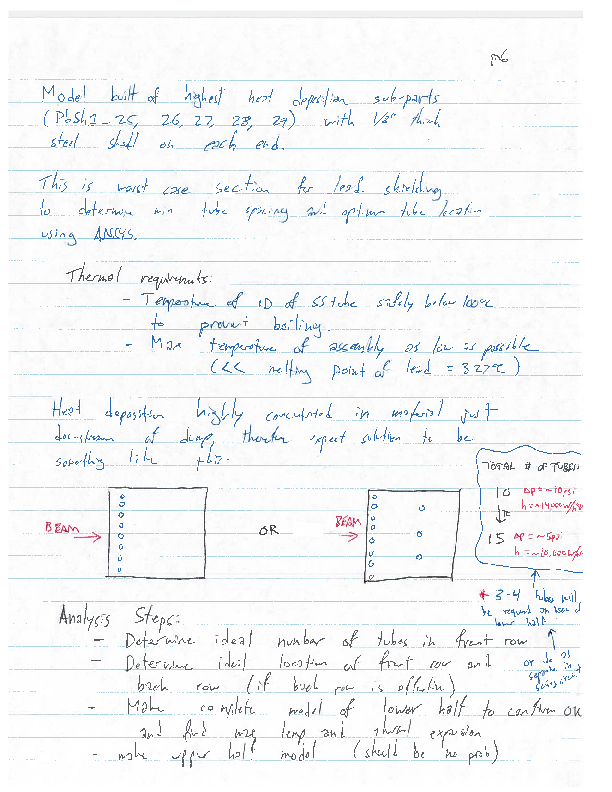 p6
Model built of highest heat deposition sub-parts
(PbSh1-25, 26, 27, 28, 29) with 1/8" thick
steel shell on each end.
This is worst case section for lead shielding
to determine min tube spacing and optimum tube location
using ANSYS.
Thermal requirements:
- Temperature of ID of SS tube safely below 100°C
to prevent boiling.
- Max temperature of assembly as low as possible
(<< melting point of lead = 327°C)
Heat deposition highly concentrated in material just
downstream of dump, therefore expect solution to be
something like this.
BEAM
OR
BEAM
TOTAL # OF TUBES
10 ΔP = ~10psi
h = ~14000 W/
15 ΔP = ~5psi
h = ~10,000 W/
* 3-4 tubes will
be required on
lower half
or do as
separate in
series circuit
Analysis Steps:
- Determine ideal number of tubes in front row
- Determine ideal location of front row and
back row (if back row is effective)
- Make complete model of lower half to confirm OK
and find max temp and thermal expansion
- make upper half model (should be no prob)